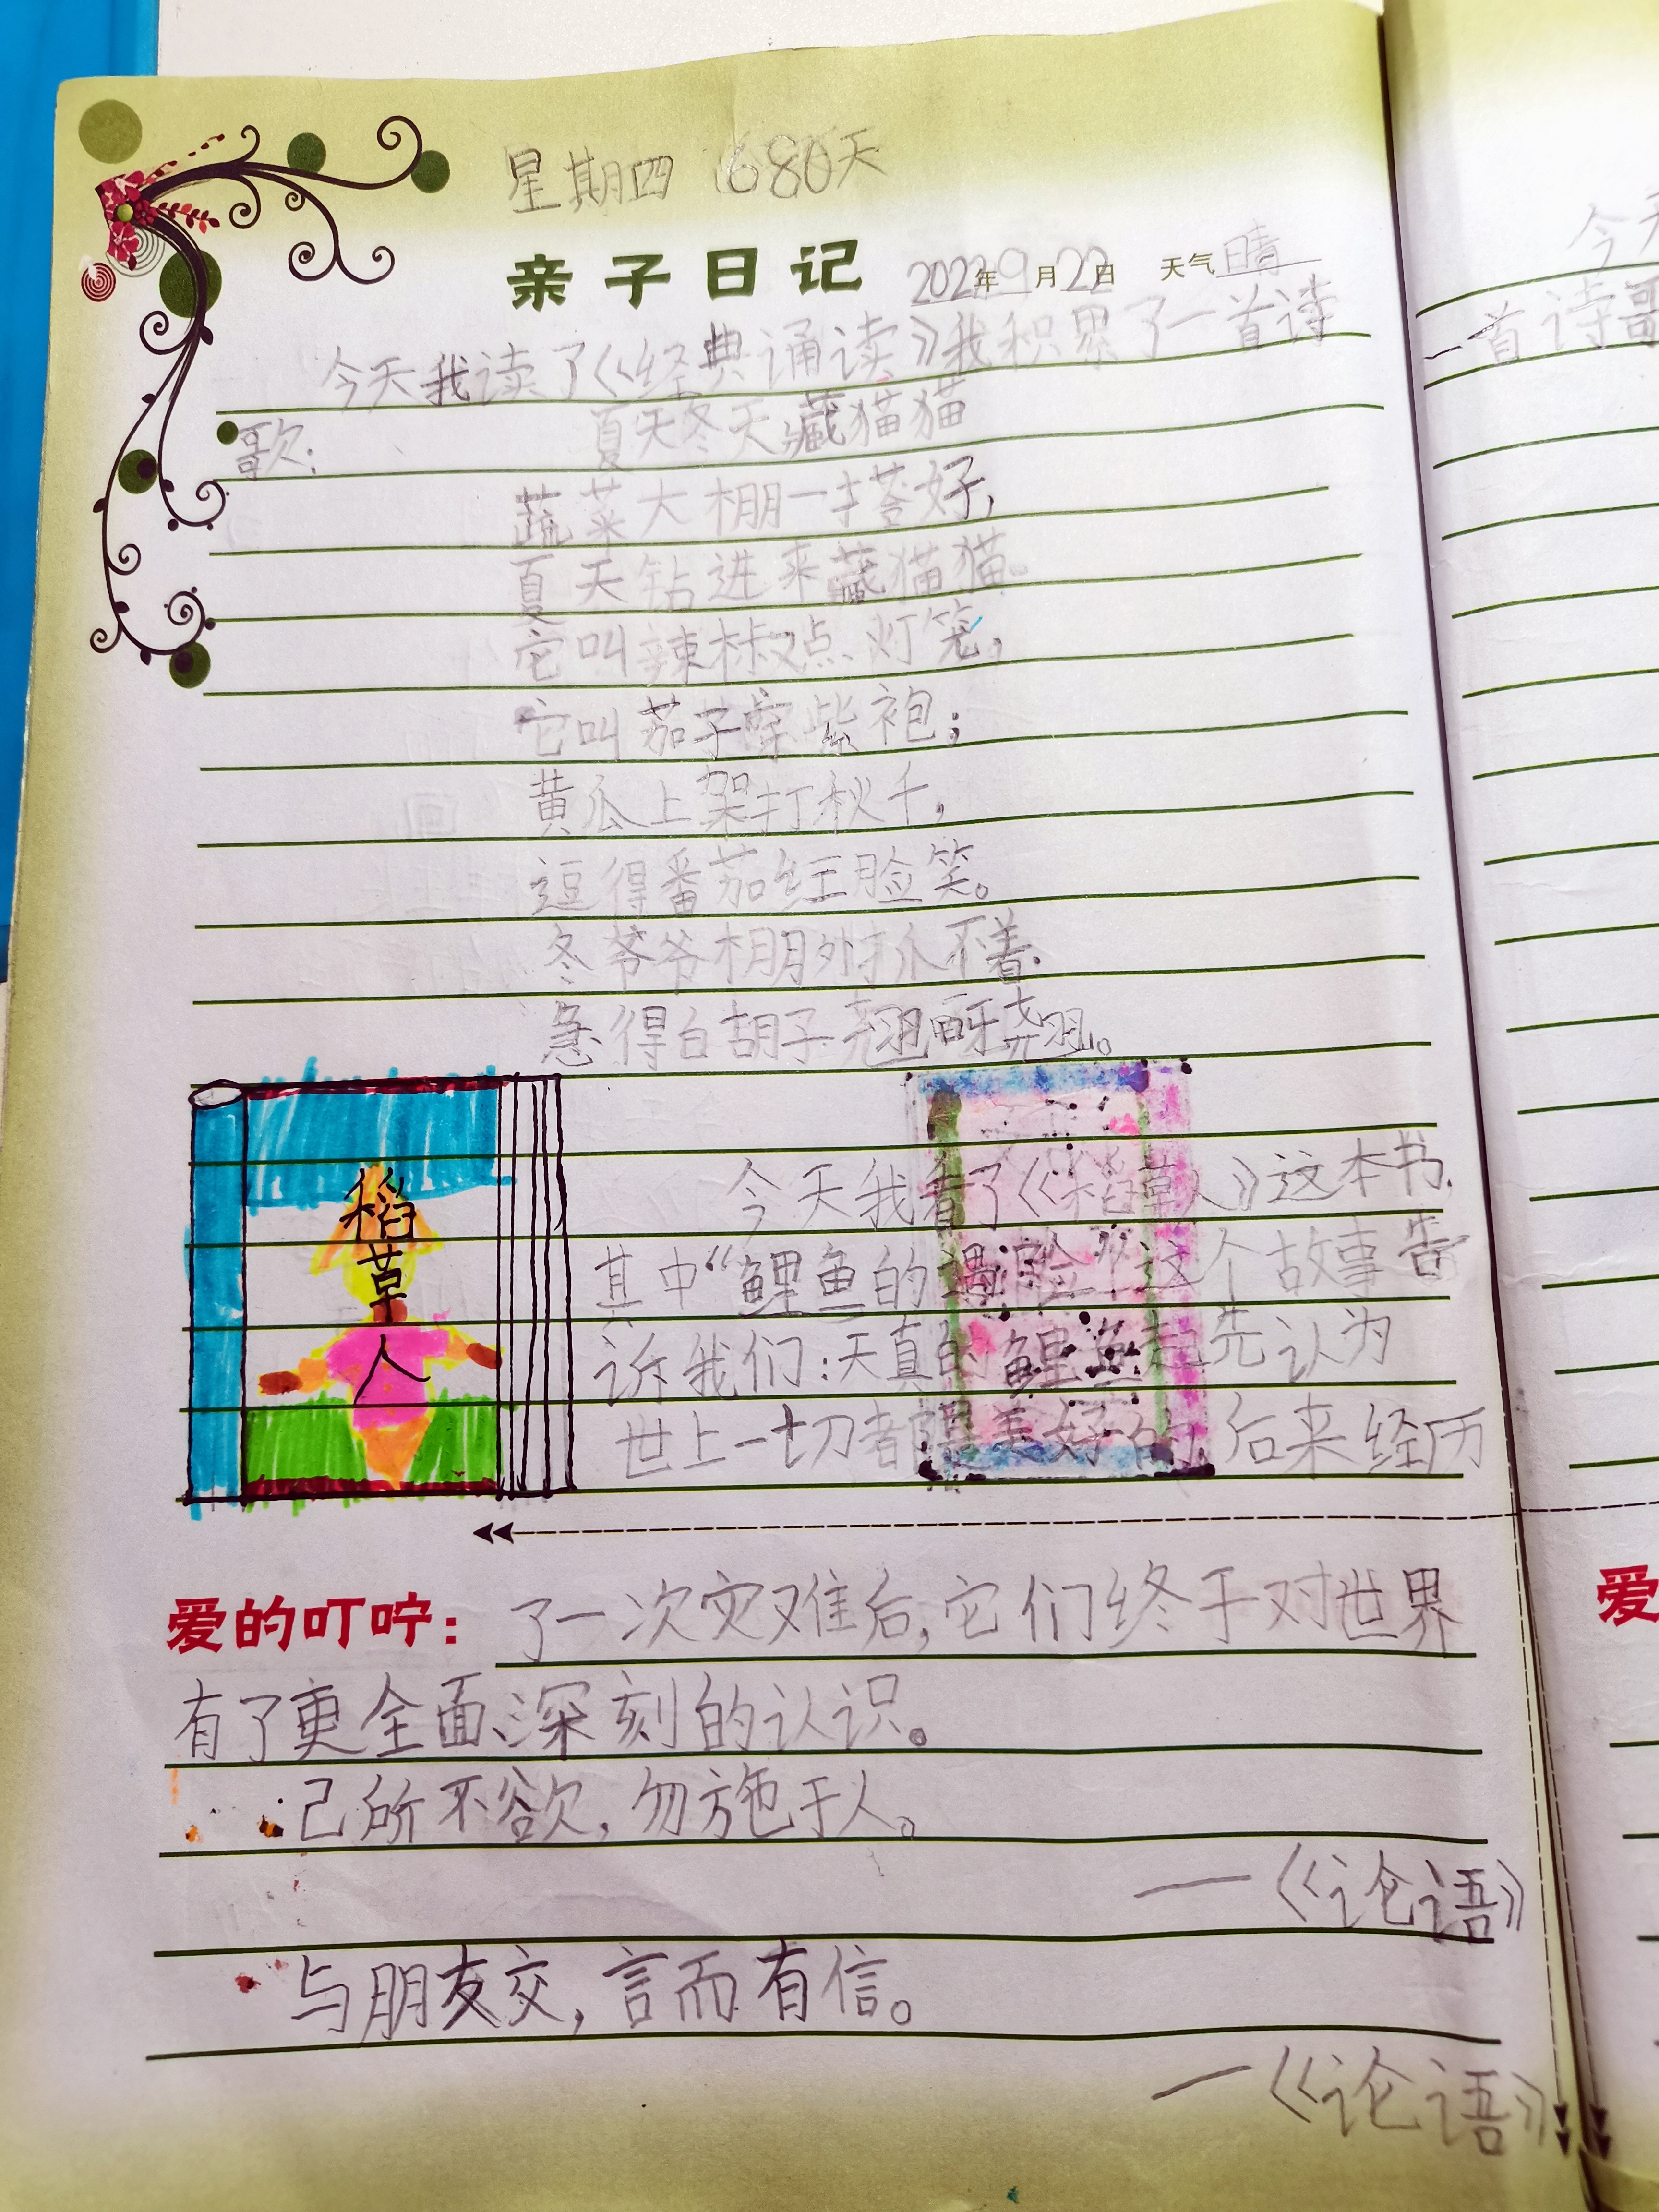 星期四 680天
亲子日记 2022年9月22日 天气晴
今天我读了《经典诵读》我积累了一首诗
歌:
夏天冬天藏猫猫
蔬菜大棚一搭好,
夏天钻进来藏猫猫。
它叫辣椒点灯笼,
它叫茄子穿紫袍;
黄瓜上架打秋千,
逗得番茄红脸笑。
冬爷爷棚外扒不着
急得白胡子翘呀翘。
稻草人
今天我看了《稻草人》这本书.
其中“鲤鱼的遇险”这个故事告
诉我们:天真的鲤鱼起先认为
世上一切都是美好的,后来经历
爱的叮咛:了一次灾难后,它们终于对世界
有了更全面、深刻的认识。
己所不欲,勿施于人。
——《论语》
与朋友交,言而有信。
—《论语》
今天
一首诗歌
爱